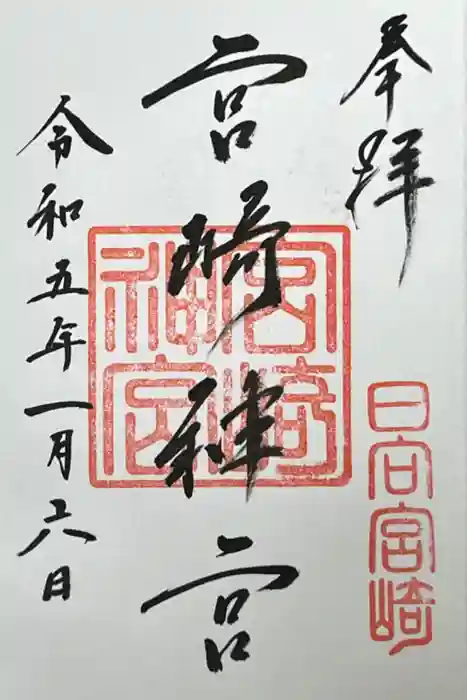 奉拝
日向宮崎
宮崎神宮
宮崎
神宮
令和五年一月六日